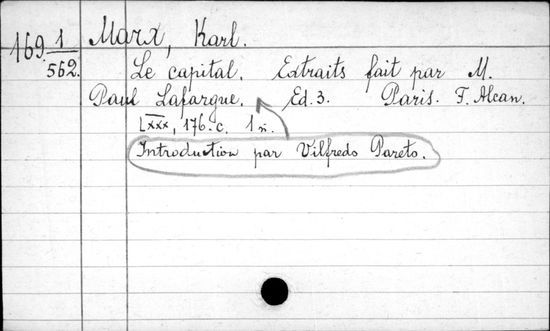 Marx, Karl.
169 1/562.
Le capital. Extraits fait par M.
Paul Lafargue. Ed. 3. Paris. F. Alcan.
LXXX, 176. c.
Introduction par Vilfredo Pareto.